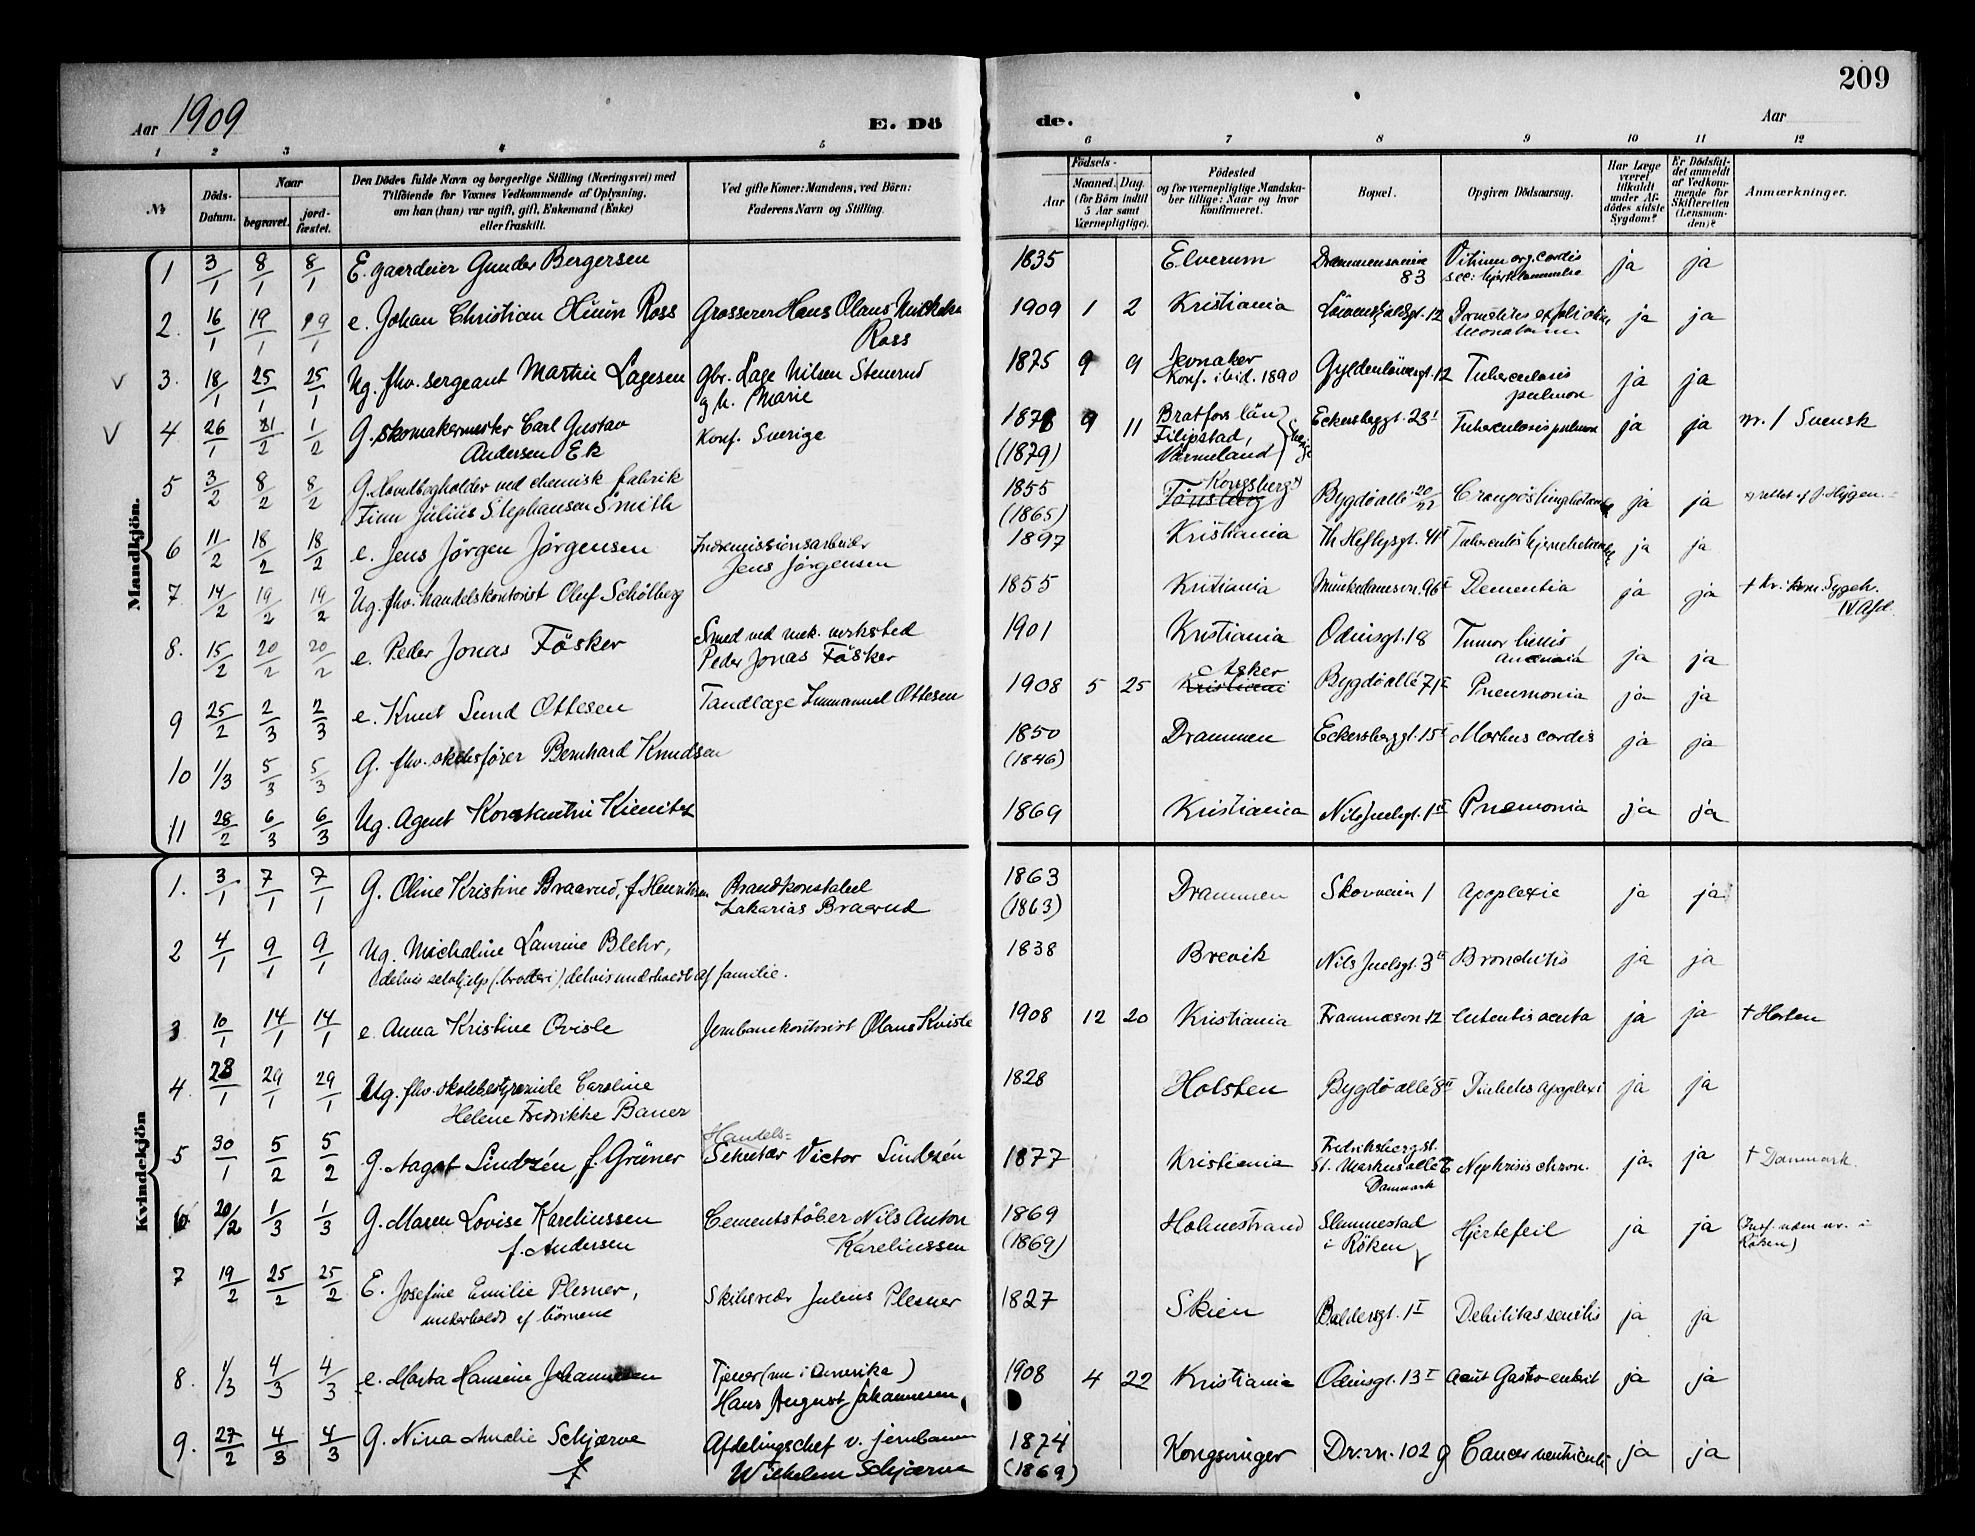 209
Aar 1909
E. Dö
de.
Aar
1 2 3 4 5 6 7 8 9 10 11 12
Nr.
Döds-
Datum.
Naar
begravet.
jord-
fæstet.
Den Dödes fulde Navn og borgerlige Stilling (Næringsvei) med
Tilföiende for Voxnes Vedkommende af Oplysning,
om han (hun) var ugift, gift, Enkemand (Enke)
eller fraskilt.
Ved gifte Koner: Mandens, ved Börn:
Faderens Navn og Stilling.
Födsels-
Aar
Maaned. Dag.
(for Börn indtil
5 Aar samt
Værnepligtige).
Födested
og for værnepligtige Mandska-
ber tillige: Naar og hvor
konfirmeret.
Bopæl.
Opgiven Dödsaarsag.
Har Læge
været
tilkaldt
under Af-
dödes sidste
Sygdom?
Er Dödsfal-
det anmeldt
af Vedkom-
mende for
Skifteretten
(Lensman-
den)?
Anmærkninger.
Mandkjön.
1 3/1 8/1 8/1 E. gaardeier Gunder Bergersen 1835 Elverum Drammensveien 83 Vitium org. cordis ja ja
2. 16/1 19/1 19/1 e. Johan Christian Huun Ross Grosserer Hans Olaus
Ross 1909 1 2 Kristiania Lövenskioldsgt. 12 ja ja
3. 18/1 25/1 25/1 Ug. fhv. sergeant Martin Lagesen Gbr. Lage Nilsen Stenerud
og h. Marie 1875 9 9 Jevnaker
Konf. ibid. 1890 Gyldenlövesgt. 12 Tuberculosis
pulmon ja ja
4 26/1 31/2 1/2 G. skomakermester Carl Gustav
Andersen Ek Konf. Sverige 1878
(1879) 9 11 Bratfors län
Filipstad,
Värmeland Eckersbergsgt. 23 I Tuberculosis pulmon ja ja nr. 1 Svensk
5 3/2 8/2 8/2 G. Hovedbogholder ved chemisk fabrik
Finn Julius Stephansen Smith 1855
(1865) Kongsberg
Tönsberg Bygdö allé 20/22 ja ja
6 11/2 18/2 18/2 e. Jens Jörgen Jörgensen Indremissionsarbeider
Jens Jörgensen 1897 Kristiania Th Heftyesgt. 41 ja ja
7. 14/2 19/2 19/2 Ug. fhv. handelskontorist Oluf Schölberg 1855 Kristiania Munkedamsvn. 96 I Dementia ja ja † Kr. kom. Sygeh.
IV Afd.
8. 15/2 20/2 20/2 e. Peder Jonas Fösker Smed ved mek. verksted
Peder Jonas Fösker 1901 Kristiania Odinsgt. 18 Tumor
ja ja
9 25/2 2/3 2/3 e. Knut Lund Ottesen Tandlæge Immanuel Ottesen 1908 5 25 Asker
Kristiani Bygdö allé 71 Pneumonia ja ja
10 1/3 5/3 5/3 G. fhv. skibsförer Bernhard Knudsen 1850
(1846) Drammen Eckersbergsgt. 15 I Morbus cordis ja ja
11 28/2 6/3 6/3 Ug. Agent Konstantin Kienitz 1869 Kristiania Nils Juelsgt. 1 II Pnemonia ja ja
Kvindekjön
1. 3/1 7/1 7/1 G. Oline Kristine Braarud, f. Henriksen Brandkonstabel
Zakarias Braarud 1863
(1863) Drammen Skovveien 1 Apoplexie ja ja
2 4/1 9/1 9/1 Ug. Michaline Laurine Blehr,
(delvis selvhjelp (broderi), delvis underholdt af familie. 1838 Brevik Nils Juelsgt. 3 II Bronchitis ja ja
3 10/1 14/1 14/1 e. Anna Kristine Qvisle Jernbanekontorist Olaus Kvisle 1908 12 20 Kristiania Framnæsvn. 12 Enteritis acuta ja ja † Horten
4. 28/1 29/1 29/1 Ug. fhv. skolebestyrerinde Caroline
Helene Fredrikke Bauer 1828 Holsten Bygdö allé 8 II Diabetes Apoplexi ja ja
5 30/1 5/2 5/2 G. Aagot Lindzén, f. Grüner Handels-
Sekretær Victor Lindzén 1877 Kristiania Fredriksberg st.
St. Markus allé
Danmark Nephrisis chron. ja. ja † Danmark.
6 20/2 1/3 1/3 G. Maren Lovise Kareliussen
f. Andersen Cementstöber Nils Anton
Kareliussen 1869
(1869) Holmestrand Slemmestad
i Röken Hjertefeil ja ja (Inf. uden nr. i
Röken)
7 19/2 25/2 25/2 E. Josefine Emilie Plesner,
underholdt af börnene Skibsreder Julius Plesner 1827 Skien Baldersgt. 1 I Debilitas senilis ja ja
8. 1/3 4/3 4/3 e. Marta Hansine Johannesen Tjener (nu i Amerika)
Hans August Johannesen 1908 4 22 Kristiania Odinsgt. 13 I Acut Gastro-enterit ja ja
9. 27/2 4/3 4/3 G. Nina Amalie Schjærve
f. Afdelingschef v. jernbanen
Wilhelm Schjærve 1874
(1869) Kongsvinger Dr.vn. 102 g Cancer ventriculi ja ja